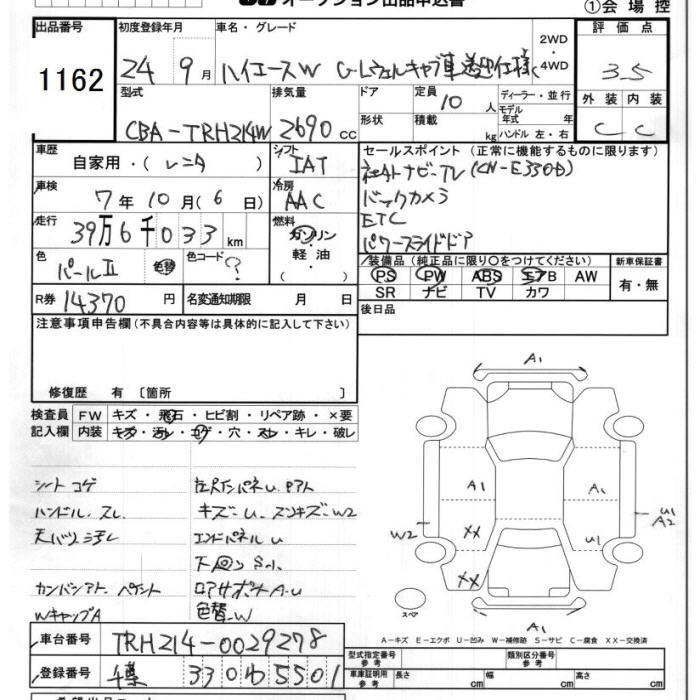 オークション出品申込書
①会場控
出品番号
1162
初度登録年月
24 9月
車名・グレード
ハイエースW G-Lウェルキャブ車送迎仕様
2WD
・
4WD
評価点
3.5
外装 内装
C C
型式
CBA-TRH214W
排気量
2690cc
ドア
形状
定員
10人
積載
kg
ディーラー・並行
モデル
年式 年
ハンドル 左・右
車歴
自家用・(レンタ)
シフト
IAT
車検
7年10月(6日)
冷房
AAC
走行
39万6千033km
燃料
ガソリン
・
軽油
色
パールⅡ
色替
色コード
?
R券 14370円
名変通知期限 月 日
セールスポイント(正常に機能するものに限ります)
社外ナビ-TV(CN-E330D)
バックカメラ
ETC
パワースライドドア
装備品(純正品に限り○をつけてください)
PS PW ABS エアB AW
SR ナビ TV カワ
新車保証書
有・無
後日品
注意事項申告欄(不具合内容等は具体的に記入して下さい)
修復歴 有〔箇所 〕
検査員
記入欄
FW キズ・飛石・ヒビ割・リペア跡・×要
内装 キズ・汚レ・コゲ・穴・スレ・キレ・破レ
シートコゲ
ハンドル.スレ
天バリ汚レ
WキャップA
キズ-U.スリキズ-W2
エンドパネルU
色替-W
A1
A1
A1
U1
A2
W2
XX
U1
XX
スペ
A1
A-キズ E-エクボ U-凹み W-補修跡 S-サビ C-腐食 XX-交換済
車台番号 TRH214-0029278
登録番号
330 わ 5501
型式指定番号
参考
類別区分番号
参考
車庫証明用
参考
長さ cm
幅 cm
高さ cm